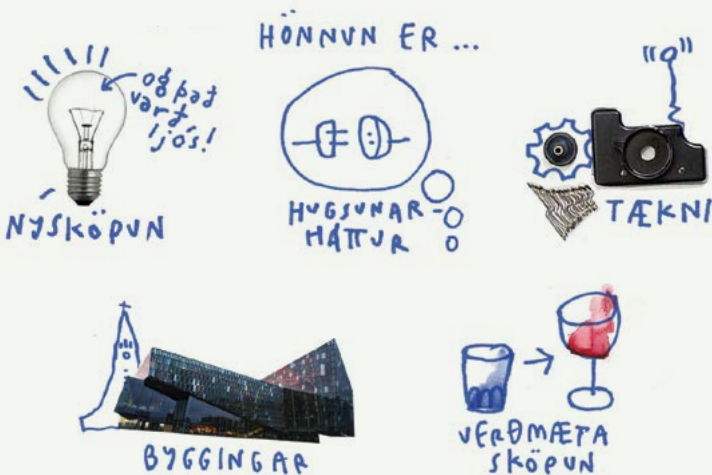 HÖNNUN ER ...
og það
varð
ljós!
NÝSKÖPUN
HUGSUNAR-
HÁTTUR
TÆKNI
BYGGINGAR
VERÐMÆTA
SKÖPUN